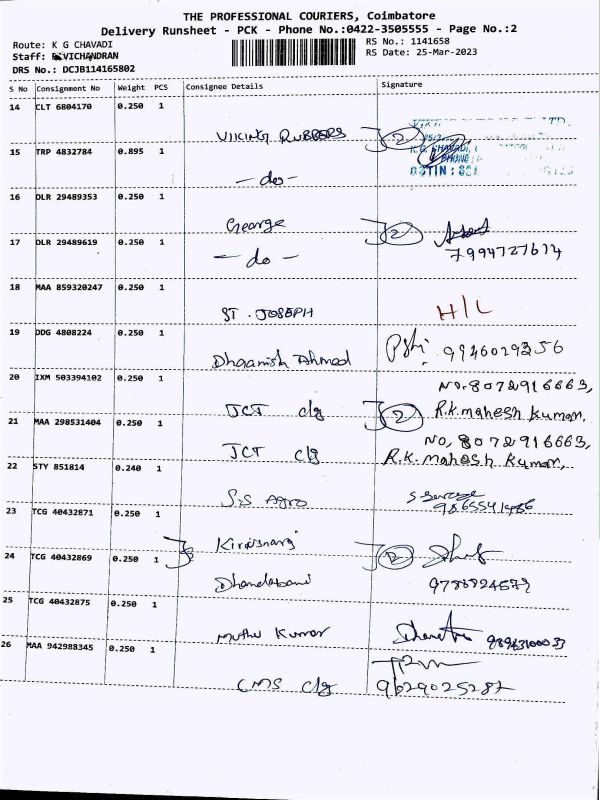 THE PROFESSIONAL COURIERS, Coimbatore
Delivery Runsheet - PCK - Phone No.:0422-3505555 - Page No.:2
Route: K G CHAVADI
RS No.: 1141658
Staff: VICHANDRAN
RS Date: 25-Mar-2023
DRS No.: DCJB114165802
S No Consignment No Weight PCS Consignee Details Signature
14 CLT 6804170 0.250 1
VIKING RUBBERS 2
15 TRP 4832784 0.895 1
GSTIN :
- do -
16 DLR 29489353 0.250 1
George 2
17 DLR 29489619 0.250 1
- do - 7994727614
18 MAA 859320247 0.250 1
ST. JOSEPH H/L
19 DDG 4808224 0.250 1
Dhaanish Ahmed 9946029356
20 IXM 503394102 0.250 1
No. 8072916663,
JCT clg 2 R.K. mahesh kumar.
21 MAA 298531404 0.250 1
No, 8072916663,
JCT clg R.K. mahesh Kumar,
22 STY 851814 0.240 1
S.S Agro
23 TCG 40432871 0.250 1
24 TCG 40432869 0.250 1
Dhandabani
25 TCG 40432875 0.250 1
Muthu Kumar
26 MAA 942988345 0.250 1
CMS clg 9629025287